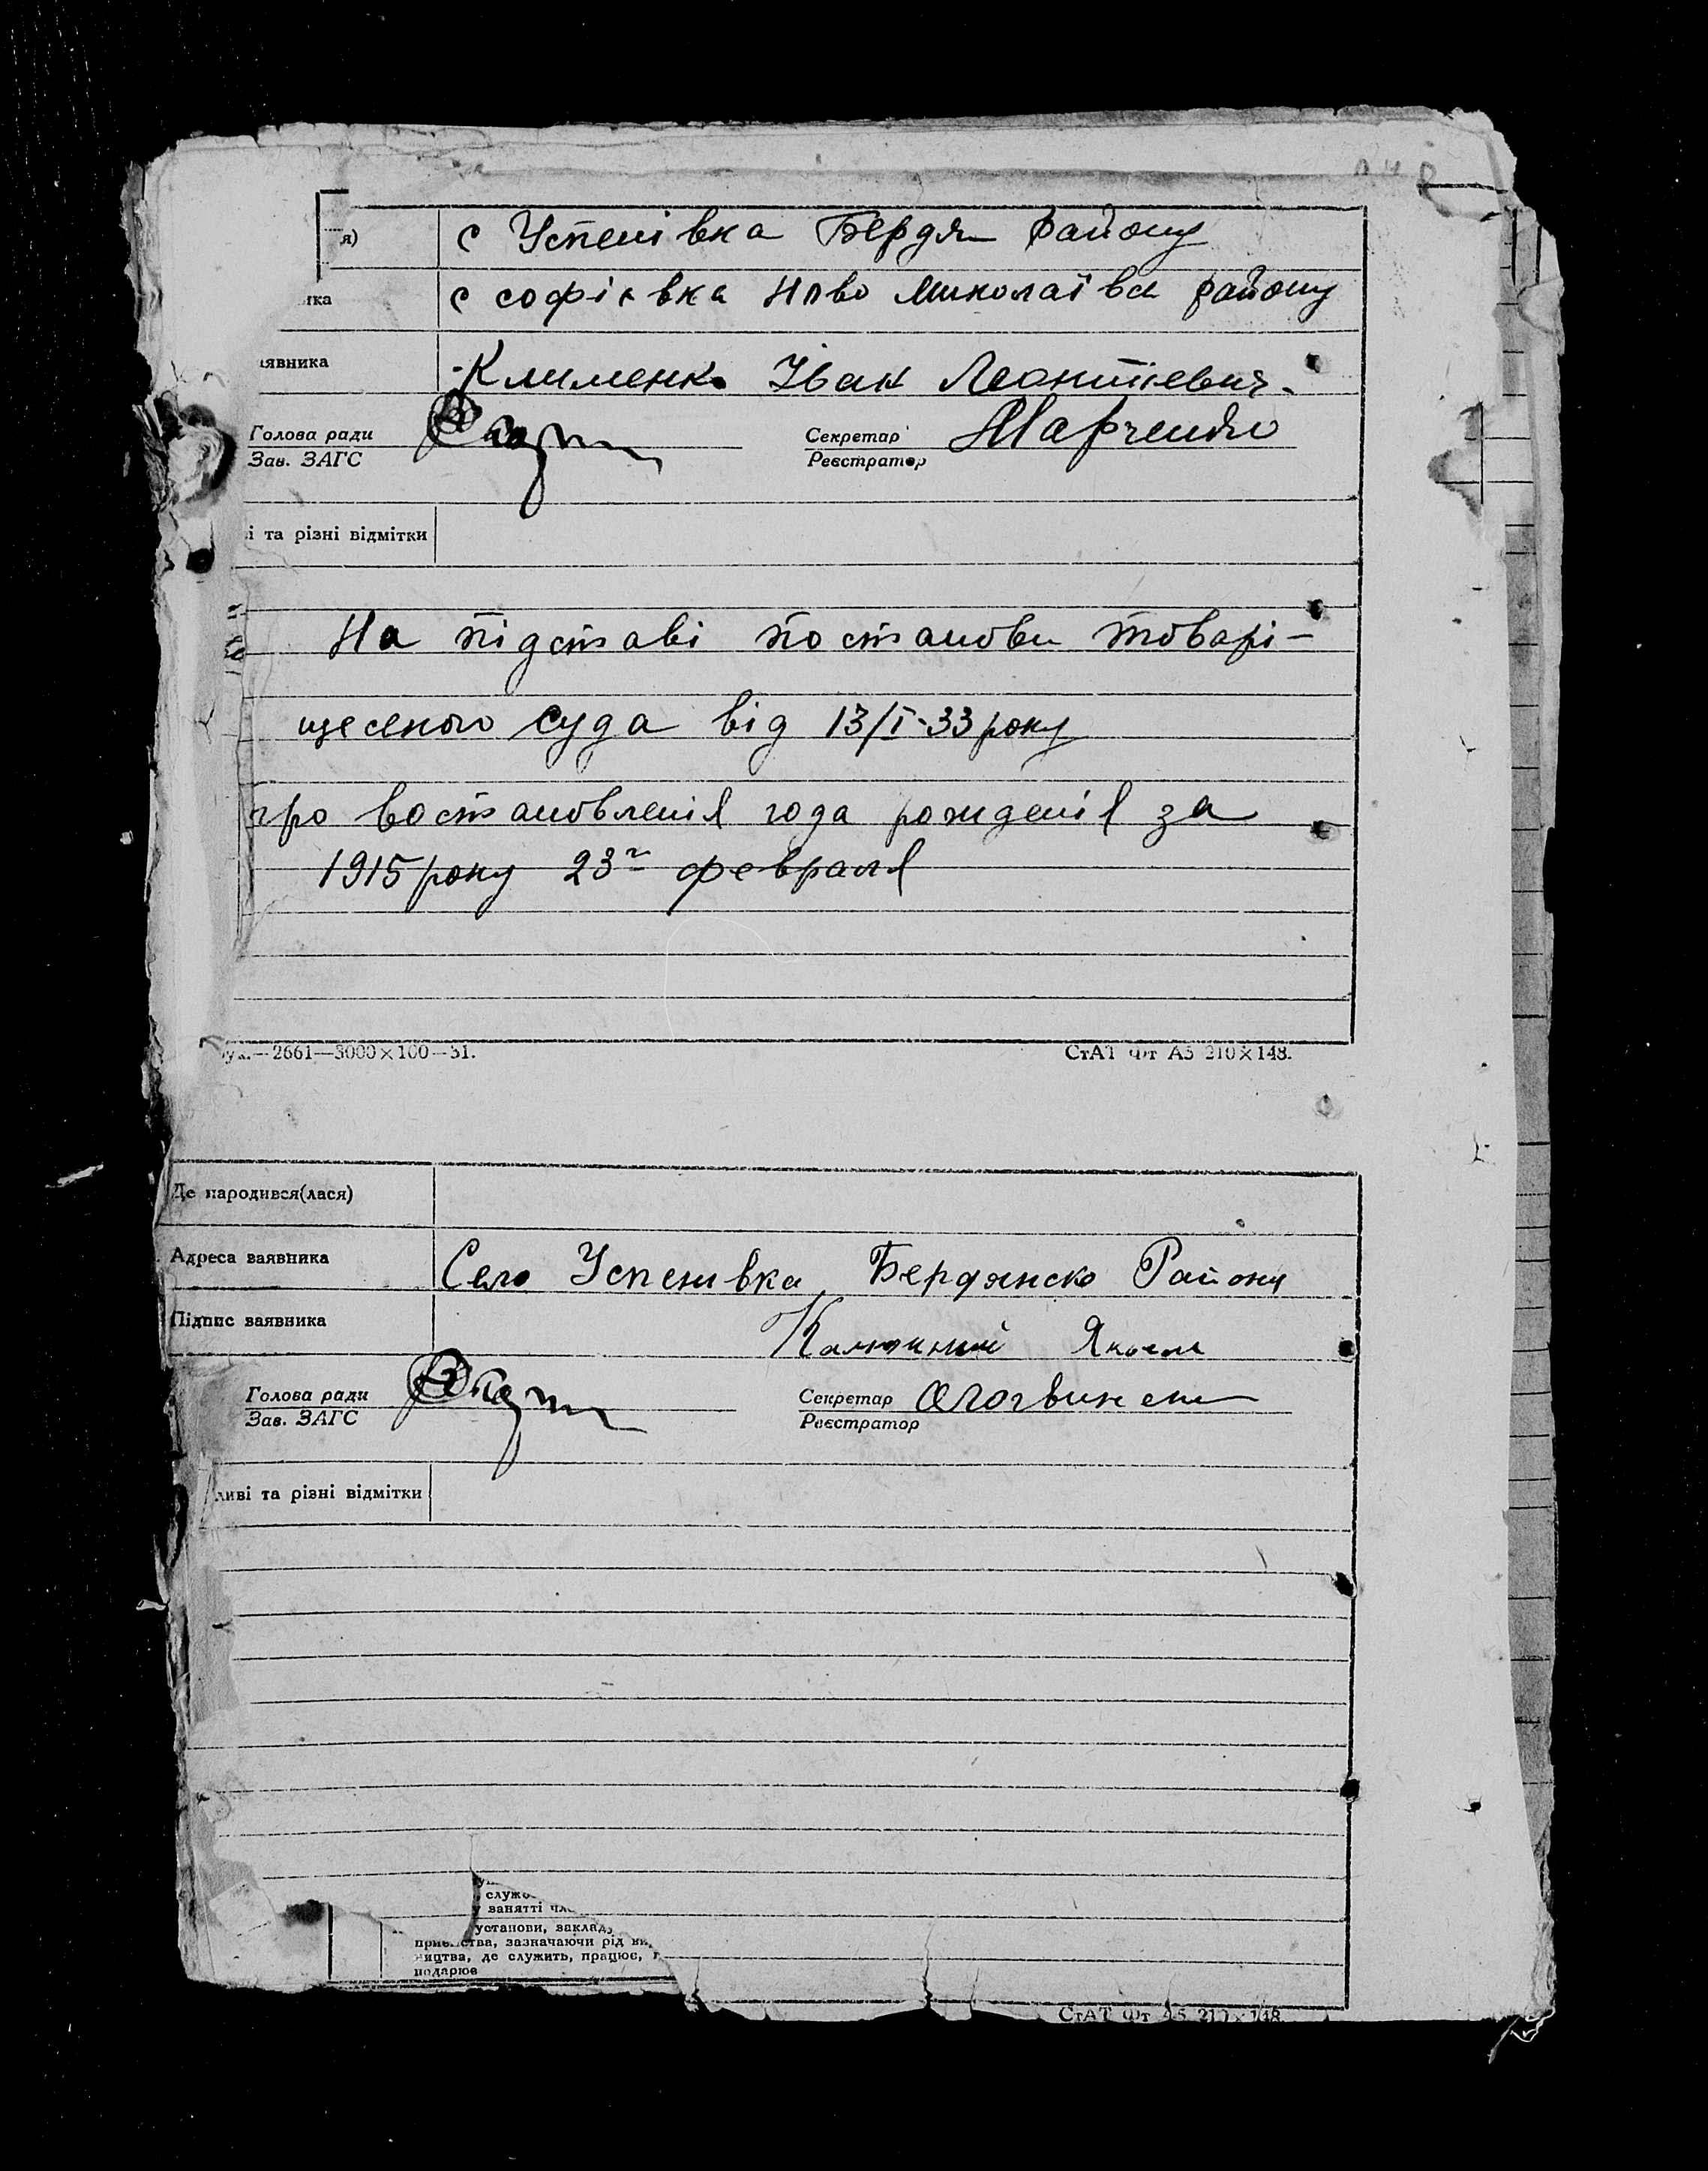 я) с Успенівка Бердян району
ика с софіївка Ново Миколаївси району
аявника Клименко Іван Леонтіевич.
Голова ради Секретар Марченко
Зав. ЗАГС Реєстратор
і та різні відмітки
На підставі постанови товарі-
щеського суда від 13/I-33 року
про востановленія года рожденія за
1915 року 23го февраля
2661—3000×100—31. СтАТ Фт А5 210×148.
Де народився(лася)
Адреса заявника Село Успенивка Бердянско Району
Підпис заявника
Голова ради Секретар
Зав. ЗАГС Реєстратор
ливі та різні відмітки
служб
занятті
установи, заклад
приємства, зазначаючи рід ви
ництва, де служить, працює,
подарює
СтАТ Фт А5 210×148